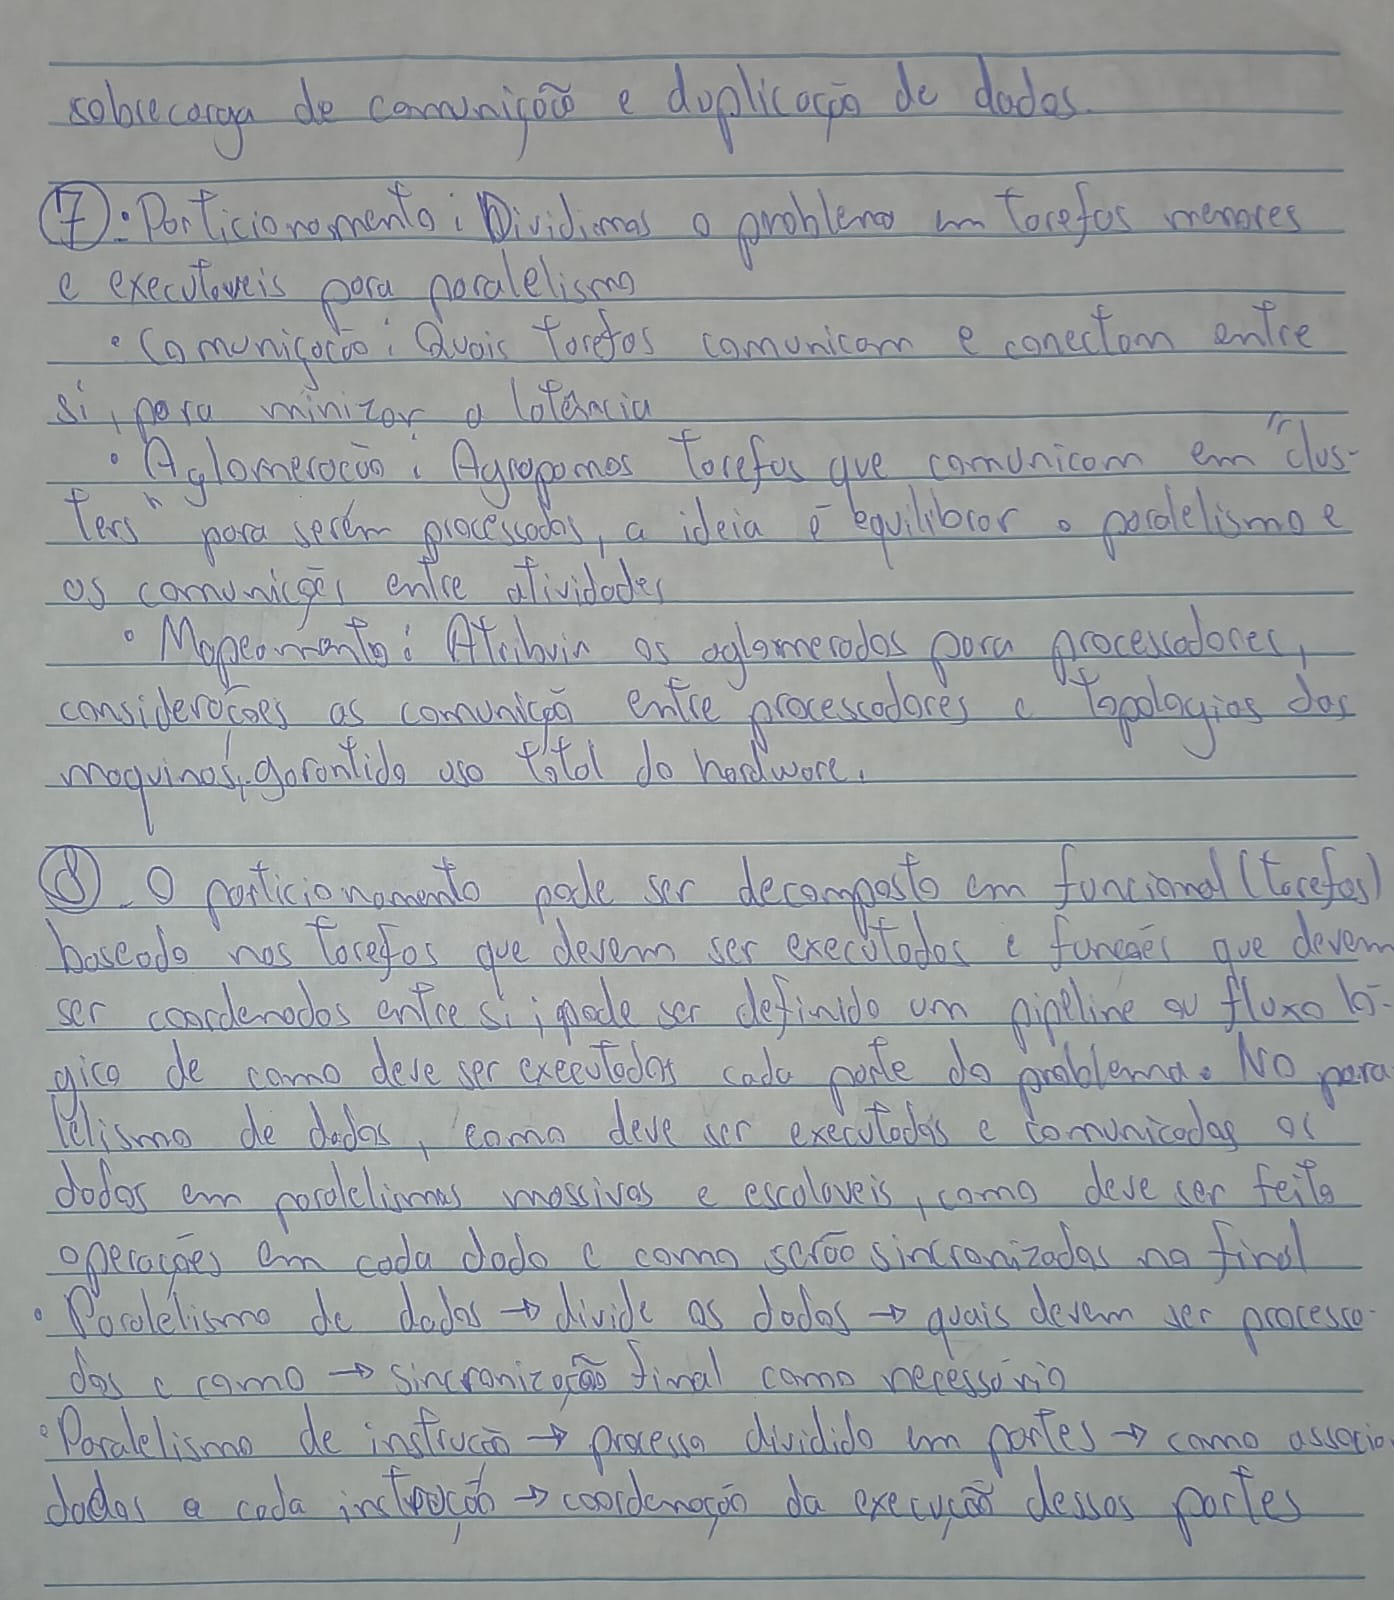 sobrecarga de comunição e duplicação de dados.
7 - • Particionamento: Dividimos o problema em tarefas menores
e executaveis para paralelismo
• Comunicação: Quais tarefas comunicam e conectam entre
si, para minizar a latância
• Aglomeração: Agrupamos tarefas que comunicam em "clus-
ters" para serém processados, a ideia é equilibrar o paralelismo e
as comunicções entre atividades
• Mapeamento: Atribuir os aglomerados para processadores,
considerações as comunicção entre processadores e topologias das
maquinas, garantido uso total do hardware.
8 - O particionamento pode ser decomposto em funcional (tarefas)
baseado nas tarefas que devem ser executadas e funções que devem
ser coordenados entre si, pode ser definido um pipeline ou fluxo ló-
gico de como deve ser executados cada parte do problema. No para
lelismo de dados, como deve ser executados e comunicados os
dados em paralelismos massivos e escalaveis, como deve ser feito
operações em cada dado e como serão sincronizados no final
• Paralelismo de dados → divide os dados → quais devem ser processa-
dos e como → sincronização final como necessário
• Paralelismo de instrução → processo dividido em partes → como associa
dados a cada instrução → coordenação da execução dessas partes